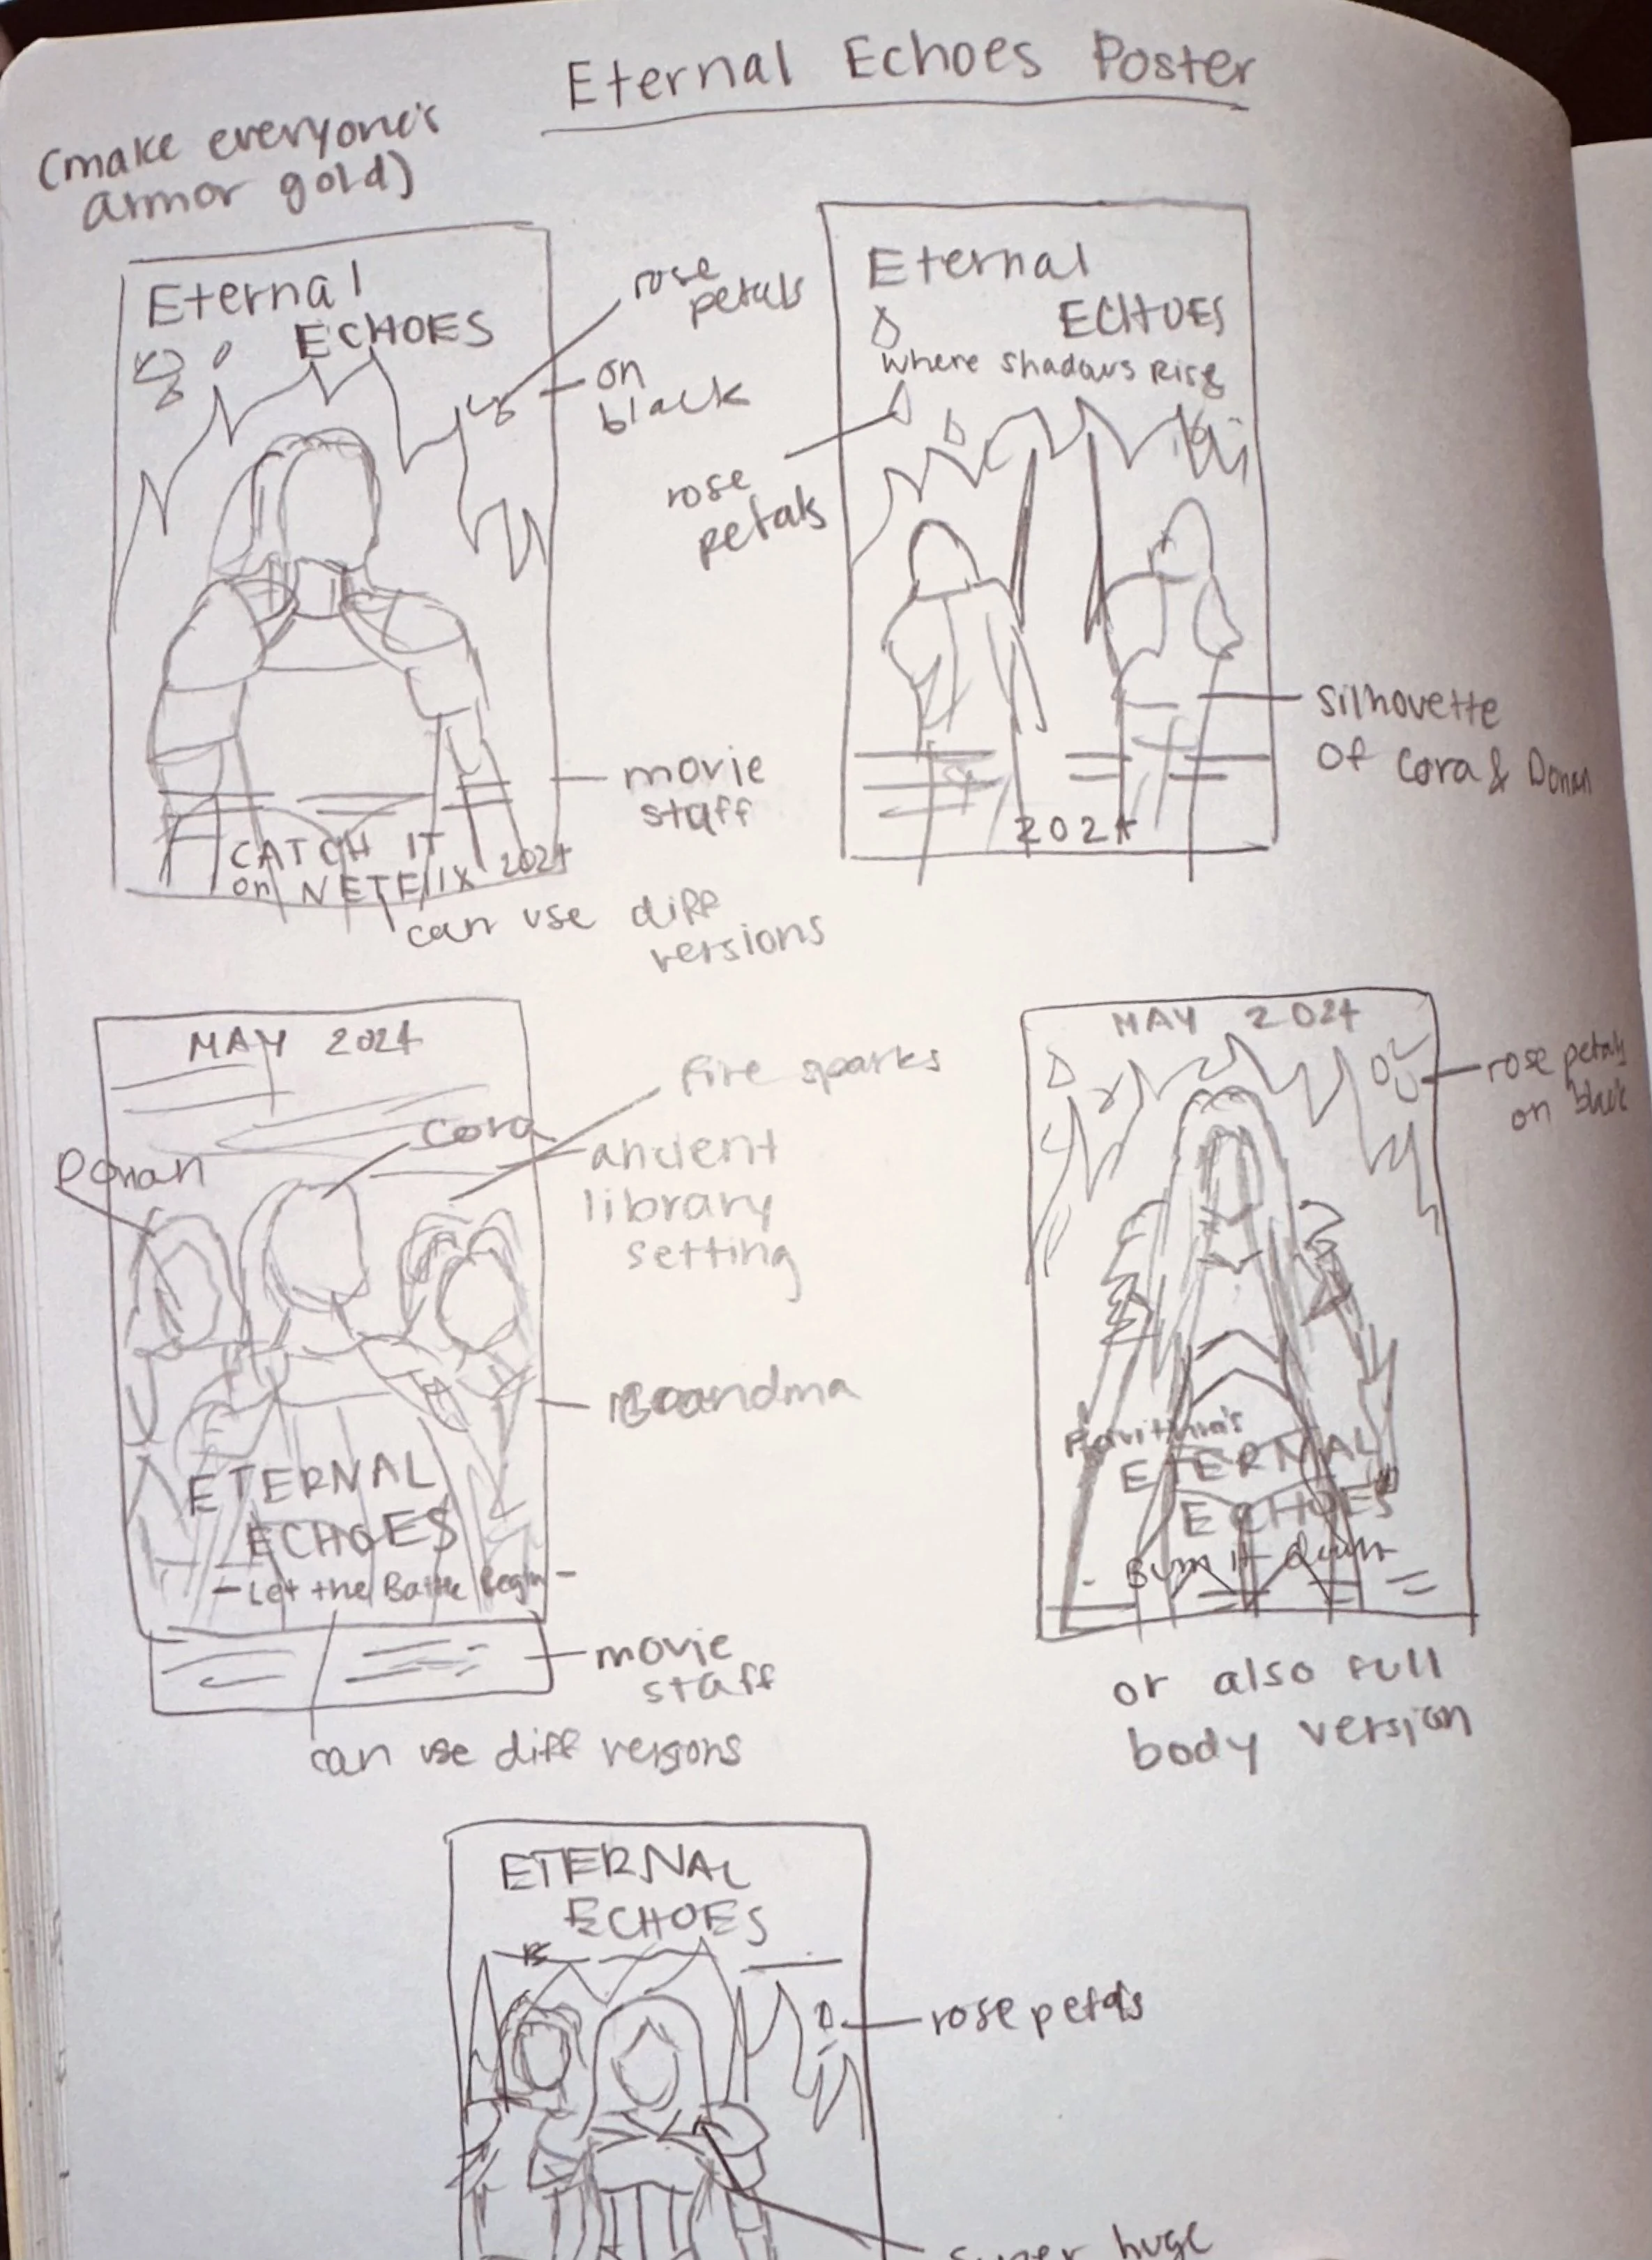 Eternal Echoes Poster
(make everyone's
armor gold)
Eternal
ECHOES
rose
petals
on
black
movie
staff
CATCH IT
on NETFLIX 2024
can use diff
versions
Eternal
ECHOES
Where Shadows Rise
rose
petals
silhouette
of Cora & Donan
2024
MAY 2024
fire sparks
Cora
Donan
ancient
library
setting
Grandma
ETERNAL
ECHOES
- Let the Battle Begin -
movie
staff
can use diff versions
MAY 2024
rose petals
on black
ETERNAL
ECHOES
Burn it down
or also full
body version
ETERNAL
ECHOES
rose petals
super huge